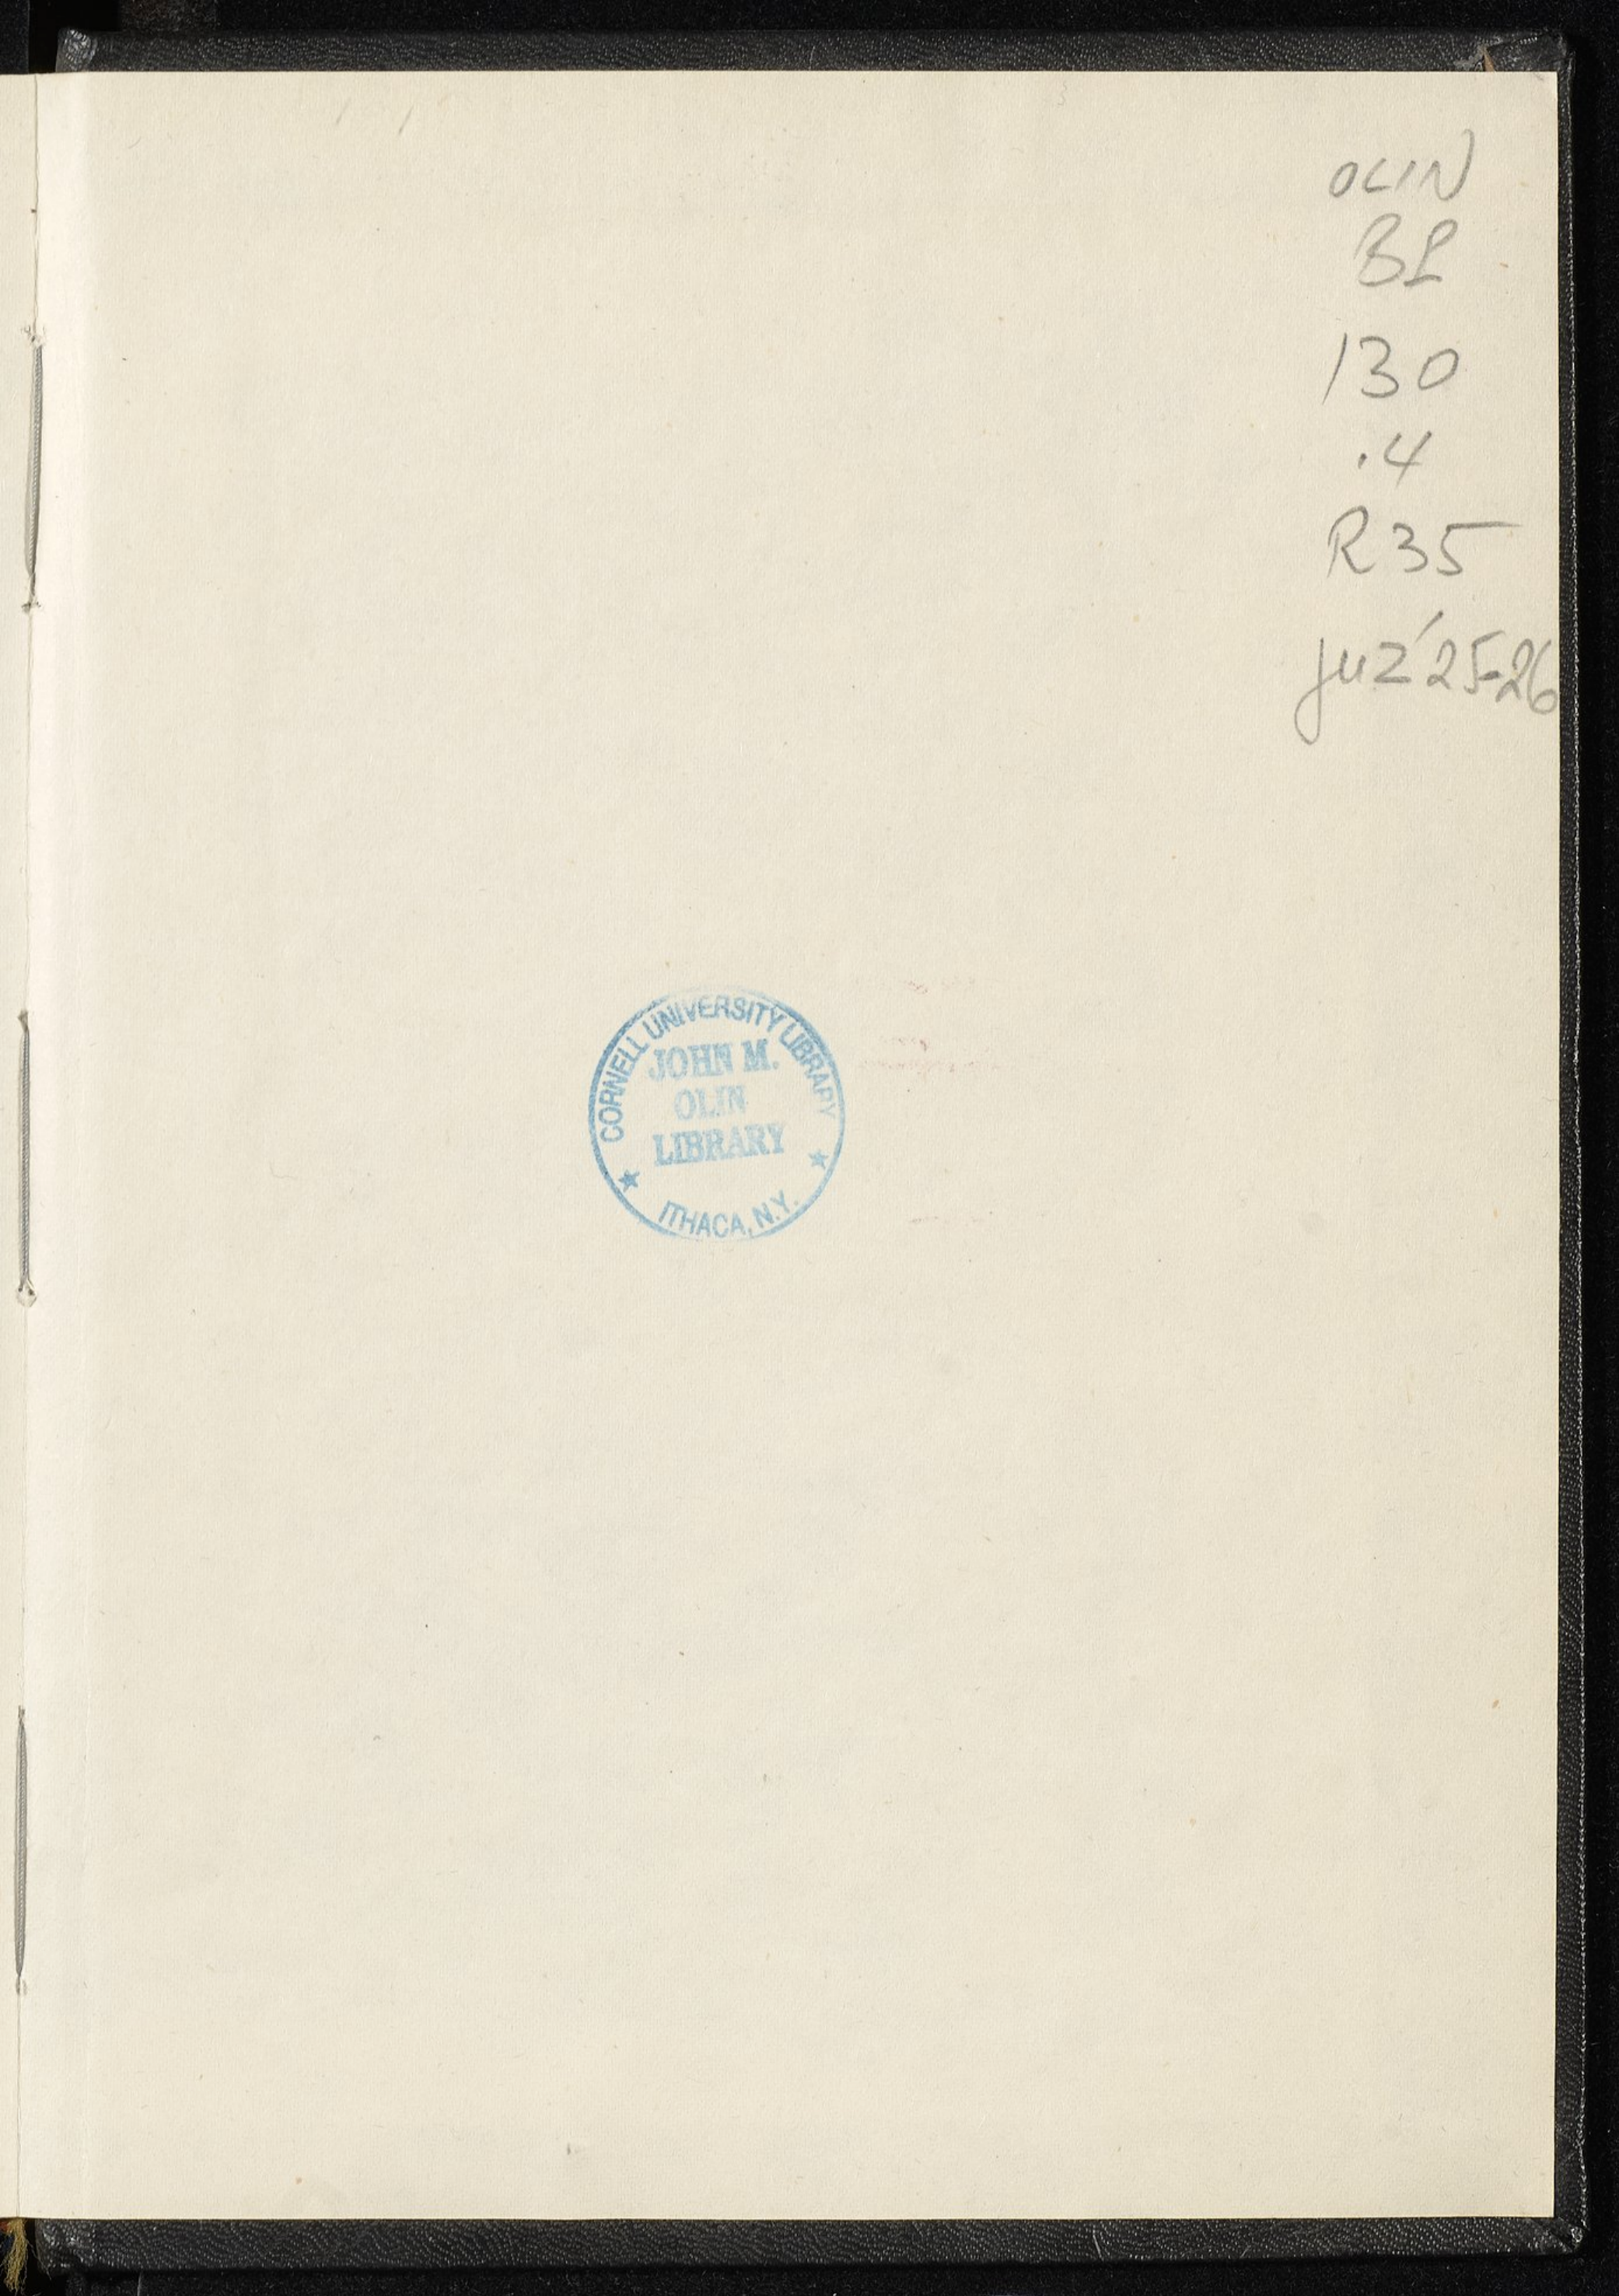 OLIN
BP
130
.4
R35
juz'25-26
CORNELL UNIVERSITY LIBRARY
JOHN M.
OLIN
LIBRARY
★ ITHACA, N.Y. ★